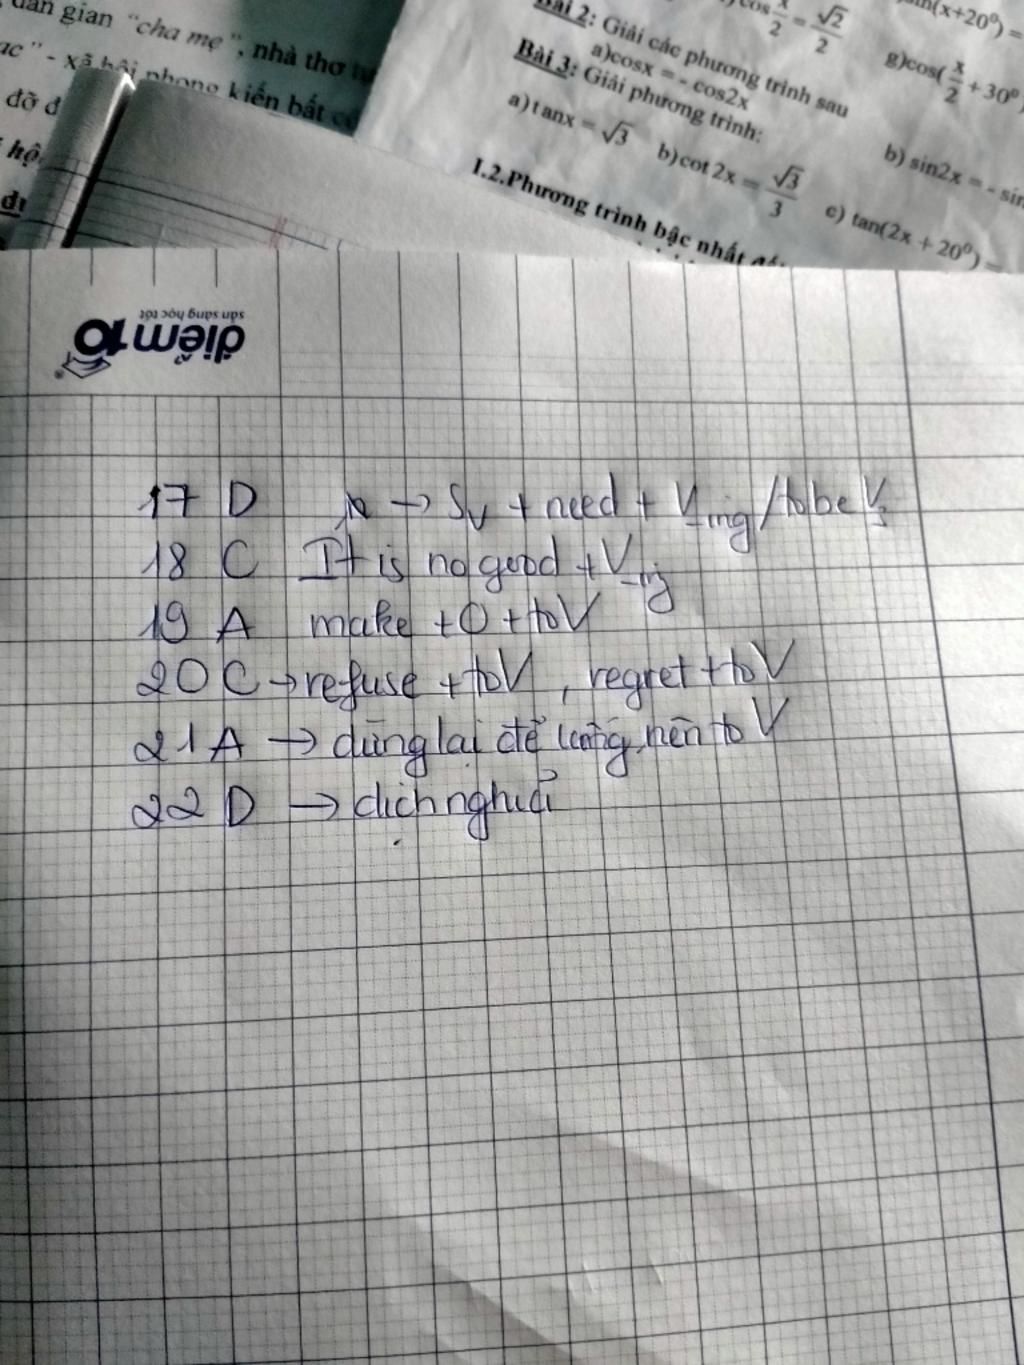 dân gian "cha mẹ", nhà thơ
ạc" - xã hội phong kiến bất
đỡ đ
hộ
cos x/2 = √2/2
sin(x+20⁰) =
g)cos(x/2 + 30⁰)
Bài 2: Giải các phương trình sau
a)cosx = - cos2x
b) sin2x = - sin
Bài 3: Giải phương trình:
a)tanx = √3 b)cot 2x = √3/3 c) tan(2x + 20⁰) =
I.2.Phương trình bậc nhất
điểm 10
sẵn sàng học tốt
17 D → Sv + need + V_ing / to be V3
18 C It is no good + V_ing
19 A make + O + to V
20 C → refuse + to V , regret + to V
21 A → dừng lại để uống, nên to V
22 D → dịch nghĩa